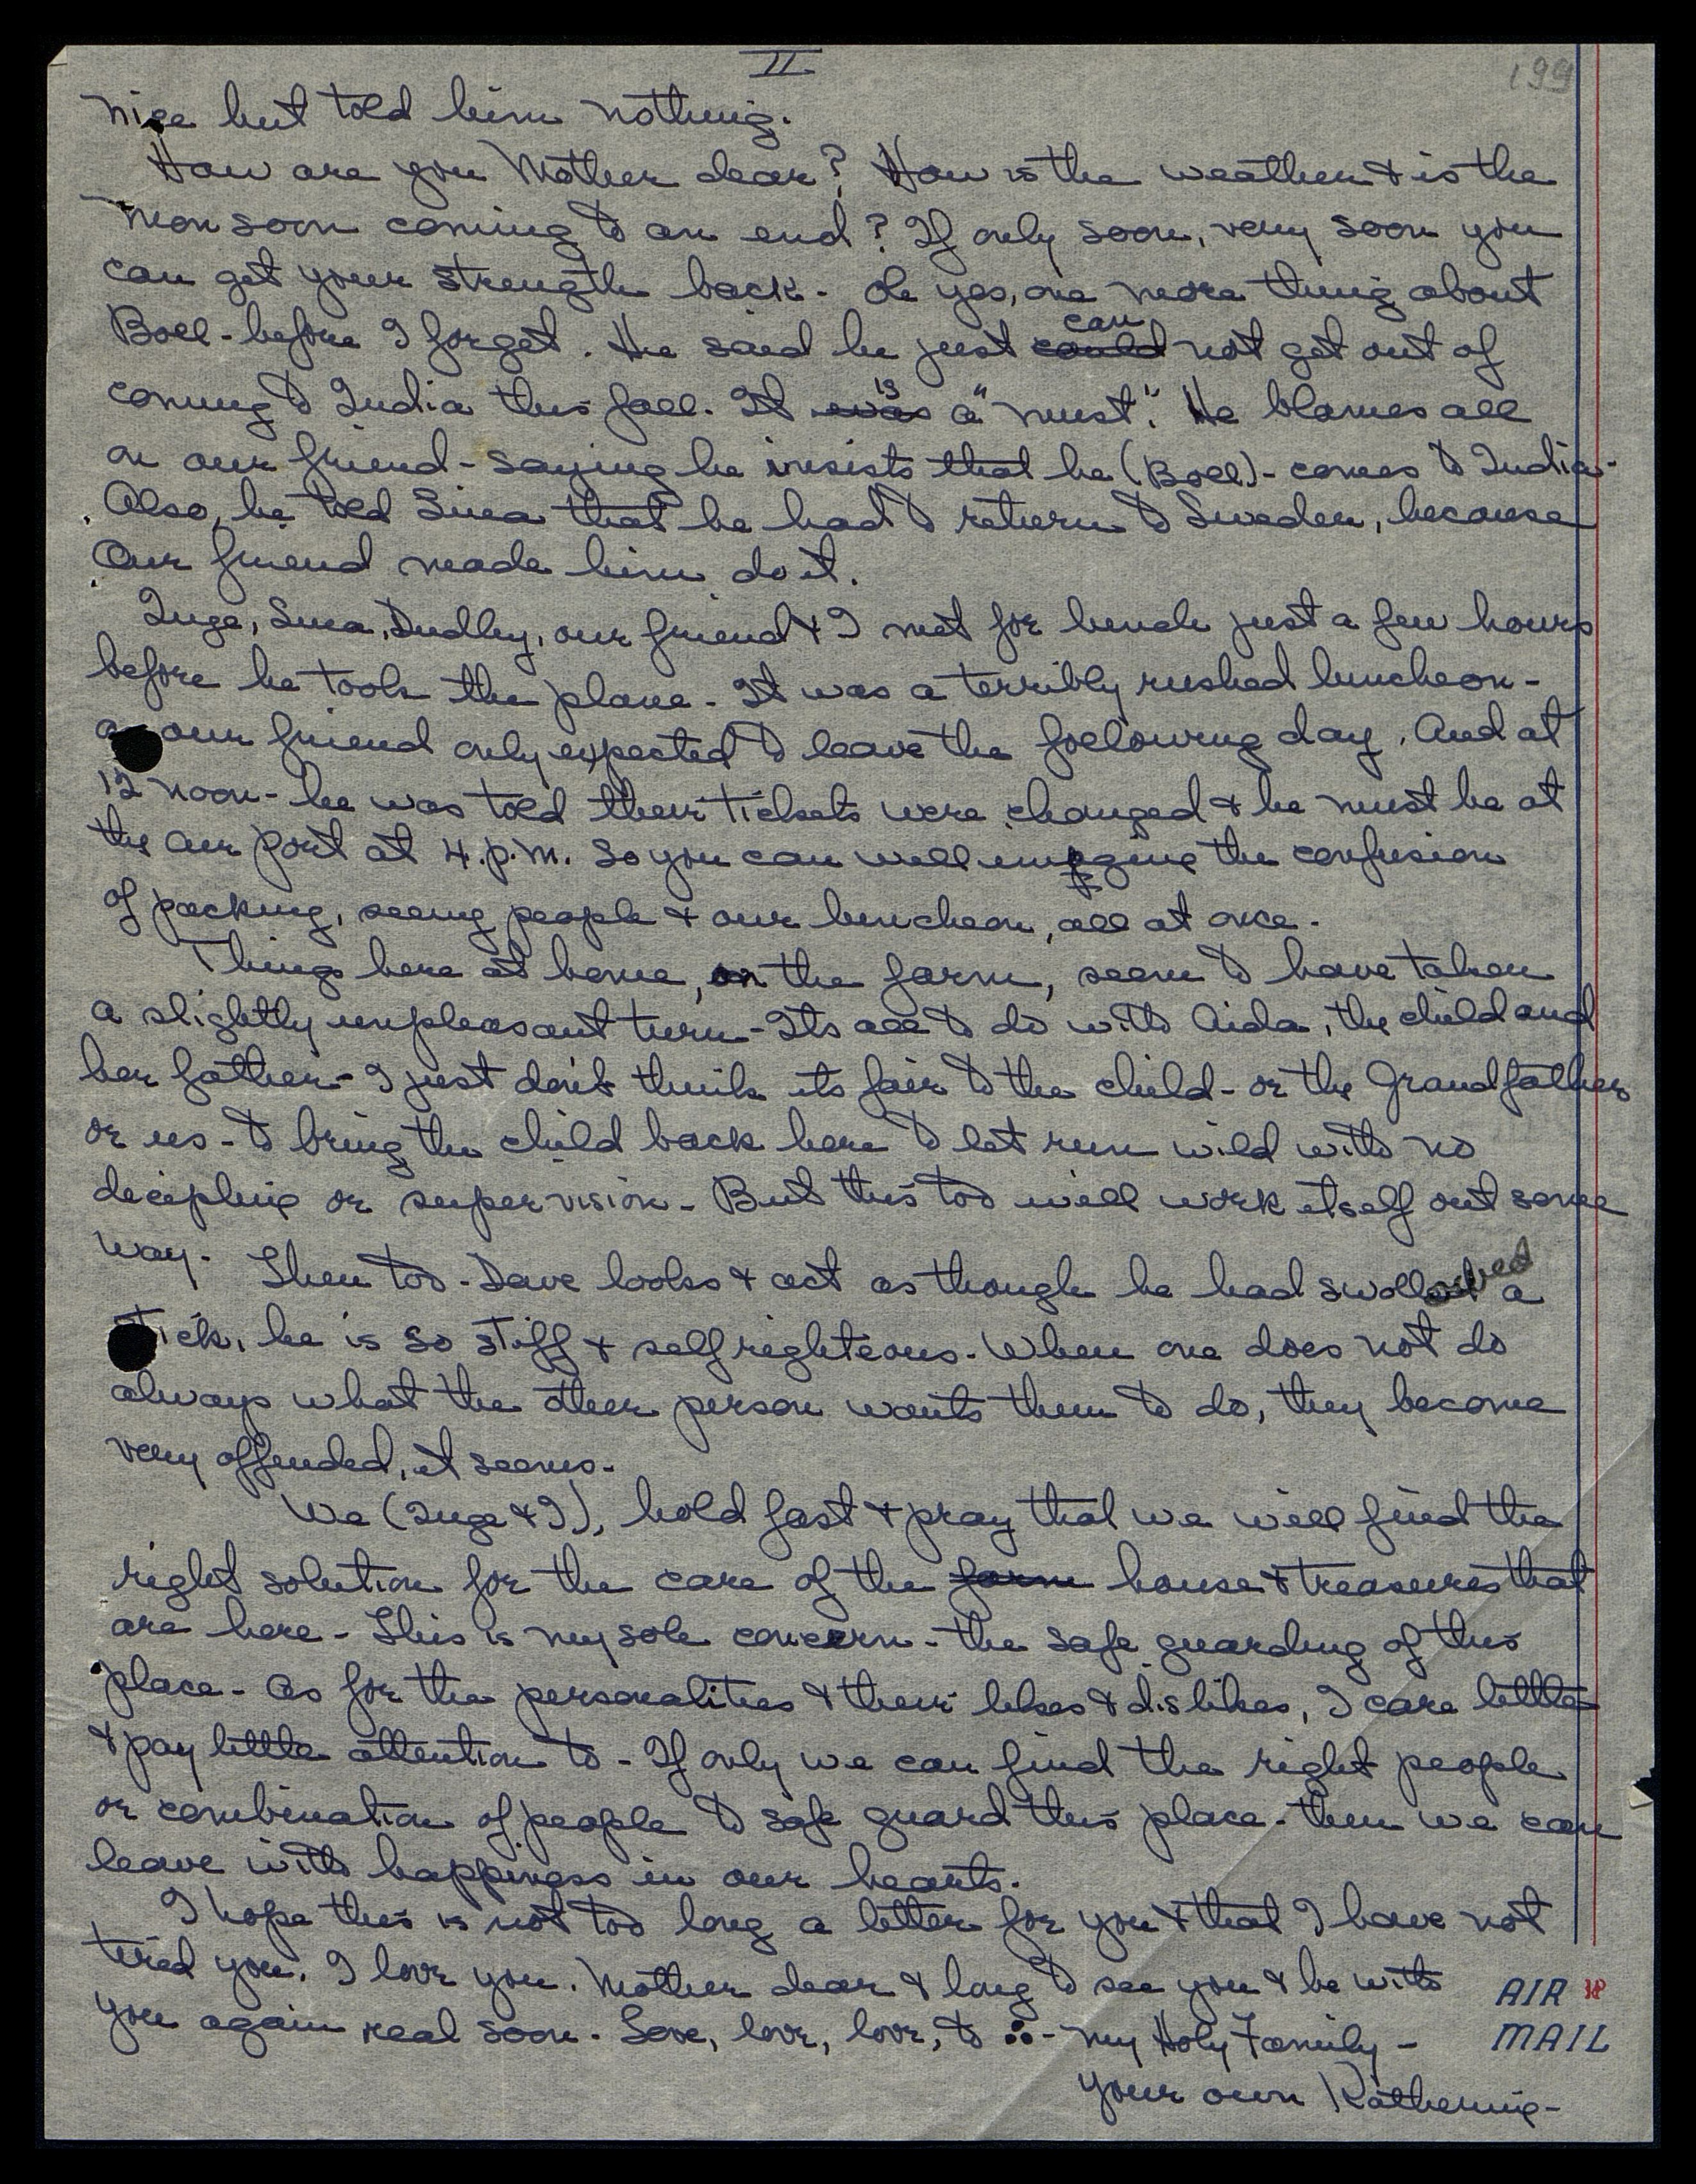 II
199
nice but told him nothing.
How are you Mother dear? How is the weather & is the
monsoon coming to an end? If only soon, very soon you
can get your strength back - Oh yes, one more thing about
Boll - before I forget. He said he just could can not get out of
coming to India this fall. It was is a "must". He blames all
on our friend - saying he insists that he (Boll) - comes to India -
Also, he told Sina that he had to return to Sweden, because
Our friend made him do it.
Inge, Sina, Dudley, our friend & I met for lunch just a few hours
before he took the plane - It was a terribly rushed luncheon -
as our friend only expected to leave the following day. And at
12 noon - he was told their tickets were changed & he must be at
the air port at 4.p.m. So you can well imagine the confusion
of packing, seeing people & our luncheon, all at once -
Things here at home, on the farm, seem to have taken
a slightly unpleasant turn - Its all to do with Aida, the child and
her father - I just don't think its fair to the child - or the Grandfather
or us - to bring the child back here to let run wild with no
decipline or supervision - But this too will work itself out some
way - Then too - Dave looks & act as though he had swollowed a
stick, he is so stiff & self righteous - When one does not do
always what the other person wants them to do, they become
very offended, it seems -
We (Inge & I), hold fast & pray that we will find the
right solution for the care of the farm house & treasures that
are here - This is my sole concern - the safe guarding of this
place - As for the personalities & their likes & dislikes, I care little
& pay little attention to - If only we can find the right people
or combination of people to safe guard this place - then we can
leave with happiness in our hearts.
I hope this is not too long a letter for you & that I have not
tired you. I love you. Mother dear & long to see you & be with
you again real soon - Love, love, love, to ∴ - my Holy Family -
your own Katherine -
AIR
MAIL